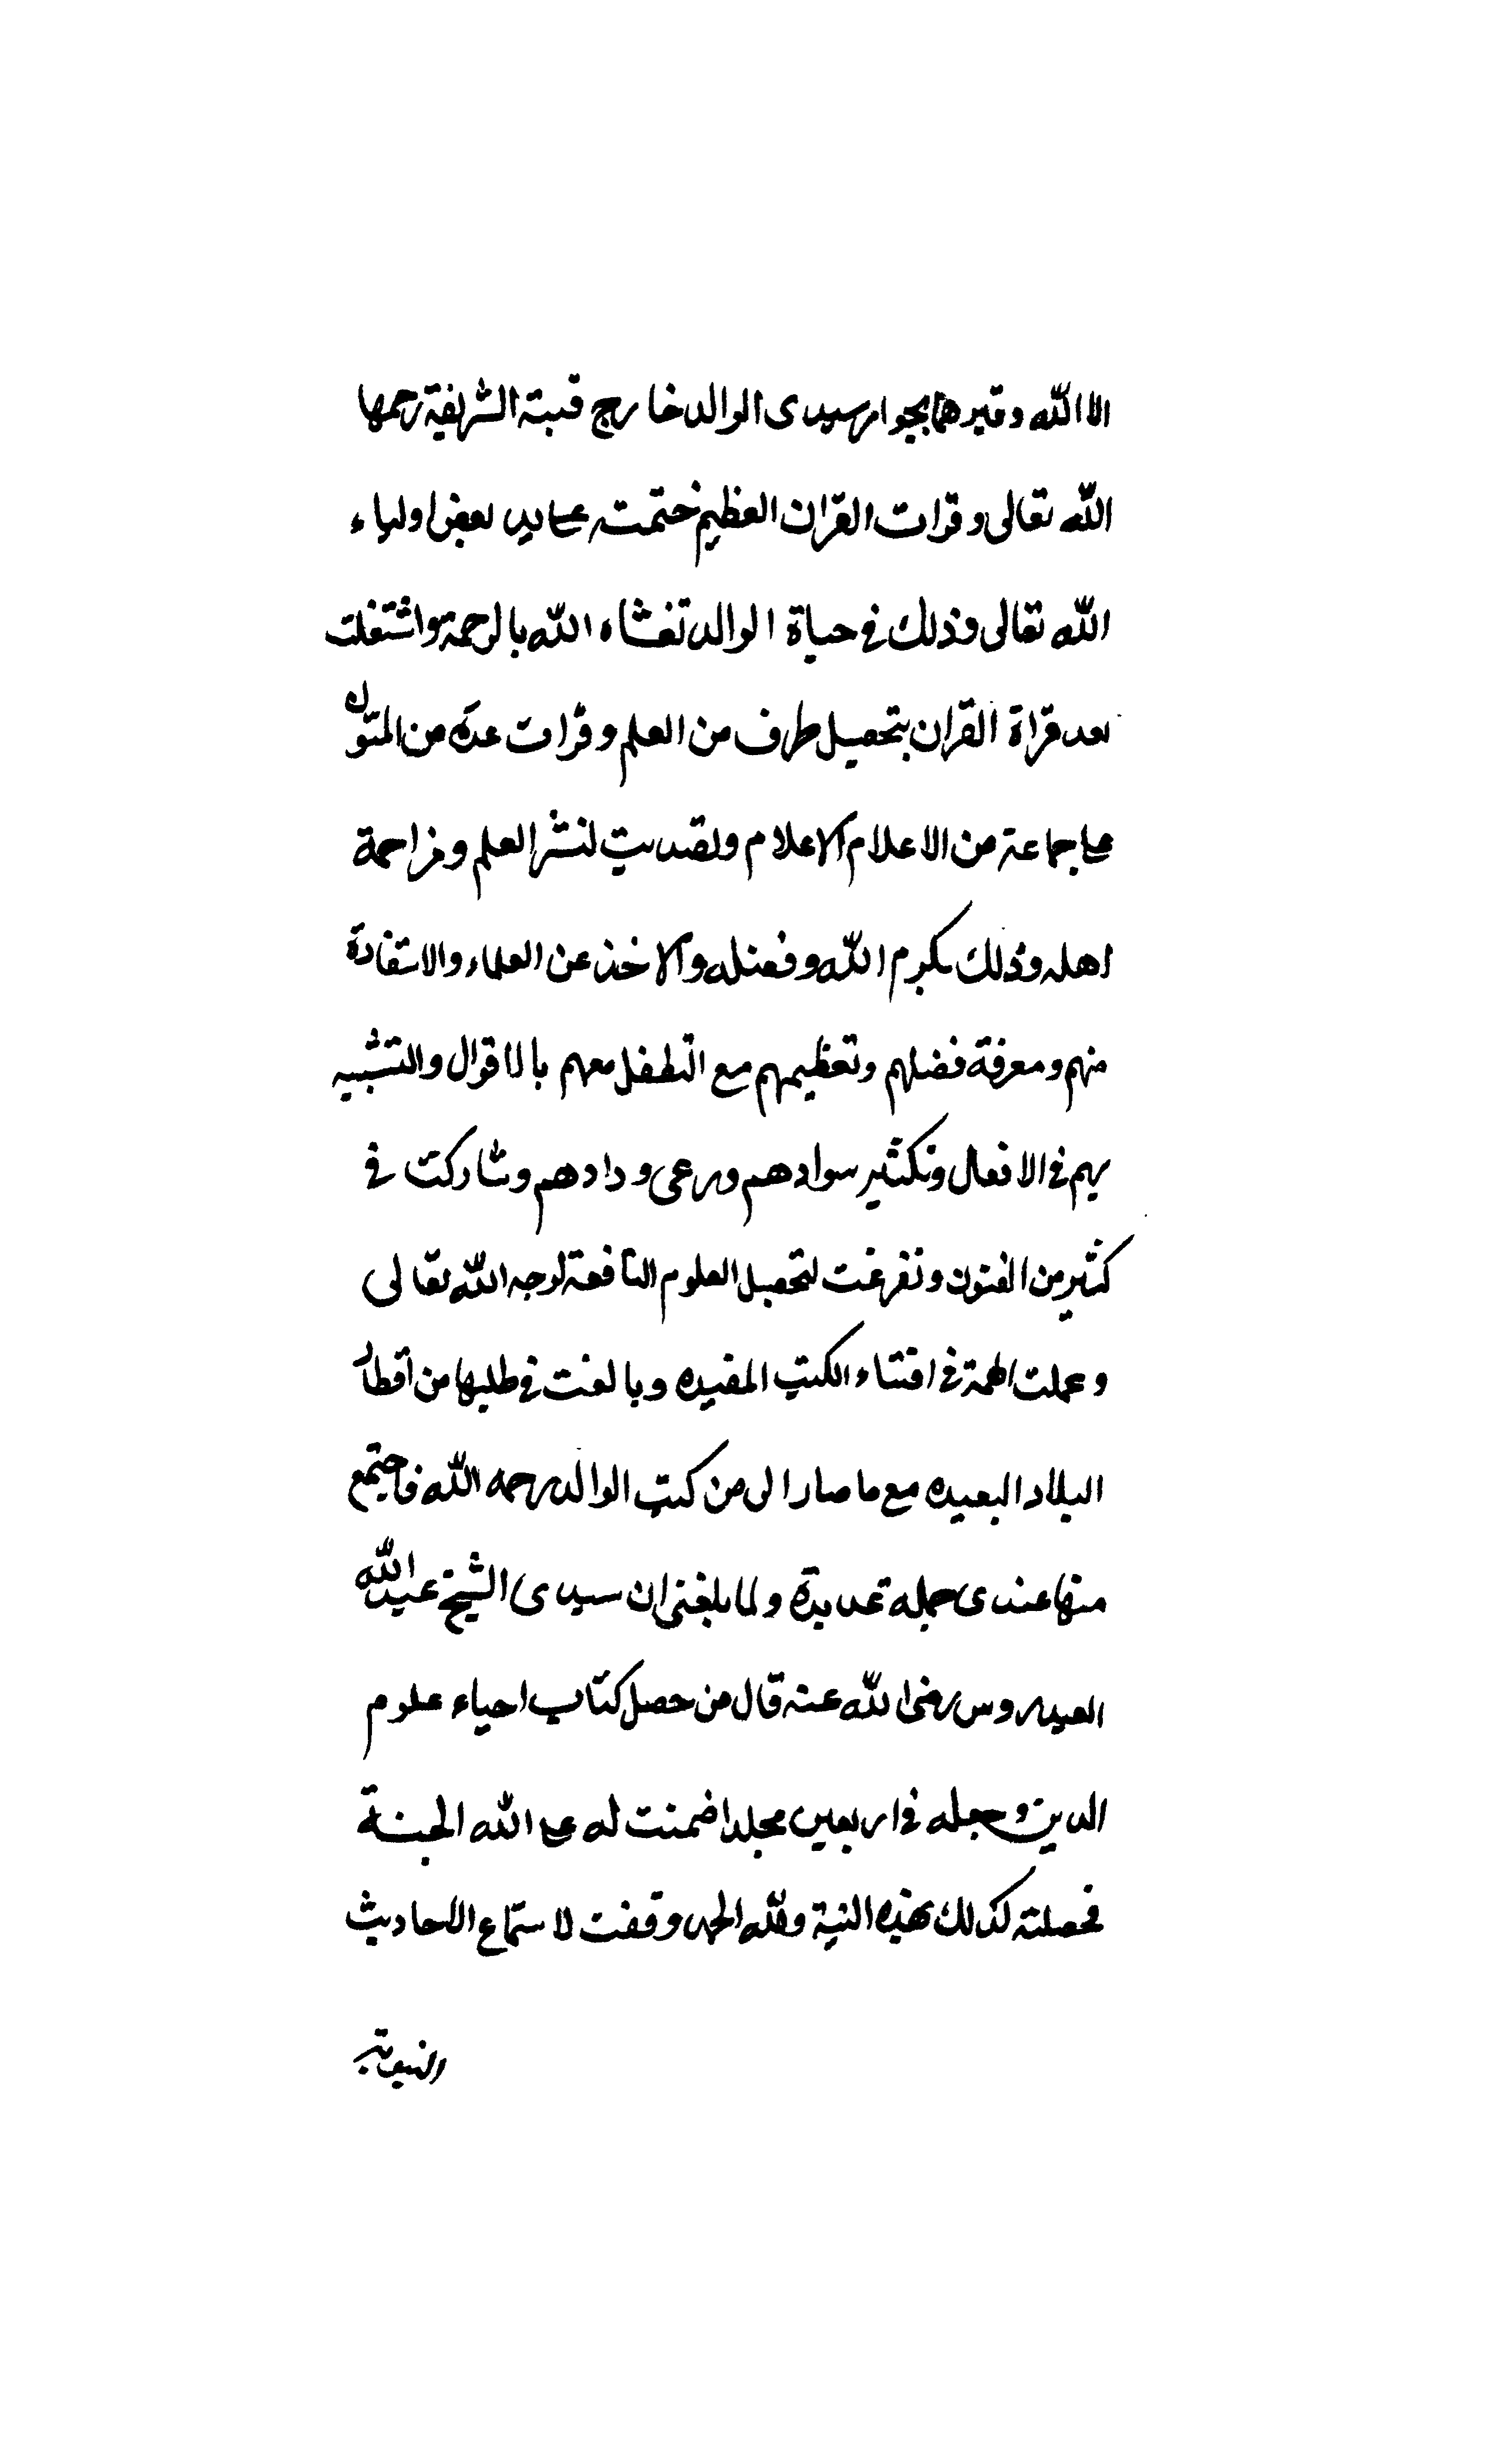 الا الله وقبرها بجوار سيدى الوالد خارج قبته الشريفة رحمها
الله تعالى وقرات القران العظيم ختمته على يد بعض اولياء
الله تعالى وذلك في حياة الوالد تغشاه الله بالرحمة واشتغلت
بعد قراة القران بتحصيل طرف من العلم وقرات عدة من المتون
على جماعة من الاعلام الاعلام وتصديت لنشر العلم ومزاحمة
اهله وذلك بكرم الله وفضله والاخذ عن العلماء والاستفادة
منهم ومعرفة فضلهم وتعظيمهم مع التطفل معهم بالاقوال والتشبيه
بهم في الافعال وتكثير سوادهم ورعى ودادهم وشاركت في
كثير من الفنون وتفرغت لتحصيل العلوم النافعة لوجه الله تعالى
وعملت الهمة في اقتناء الكتب المفيده وبالغت في طلبها من اقطار
البلاد البعيده مع ما صار الى من كتب الوالد رحمه الله فاجتمع
منها عندى جمله عديدة ولما بلغنى ان سيدى الشيخ عبد الله
العيدروس رضى الله عنه قال من حصل كتاب احياء علوم
الدين وجعله في اربعين مجلدا ضمنت له على الله الجنة
فحصلته كذلك بهذه النية ولله الحمد وقفت لاستماع الاحاديث
النبوية